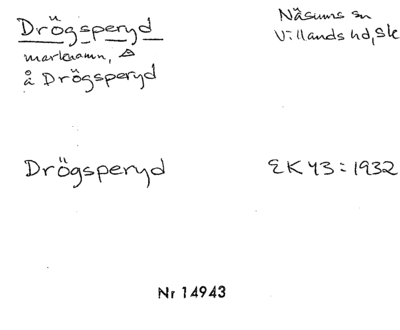 Drögsperyd
Näsums sn
Villands hd, Sk
marknamn,
å Drögsperyd
Drögsperyd
EK 43:1932
Nr 14943